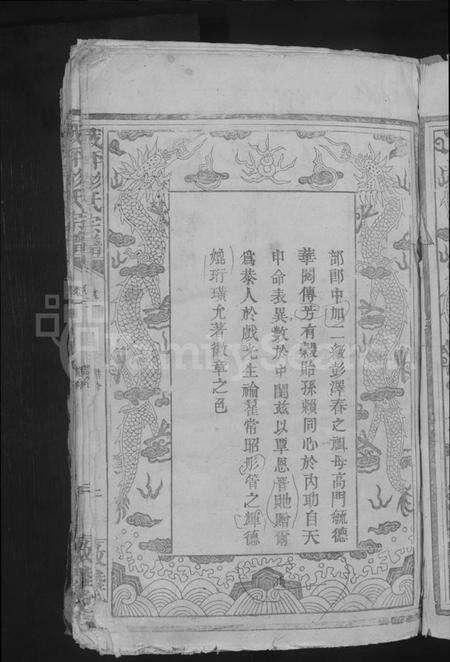 部郎中加二級彭澤春之祖母高門毓德
華閥傳芳有穀貽孫賴同心於內助自天
申命表異數於中閨茲以覃恩晉貤贈爾
為恭人於戲七生褕翟常昭彤管之輝德
嬈珩璜允著徽章之色
彭氏宗譜